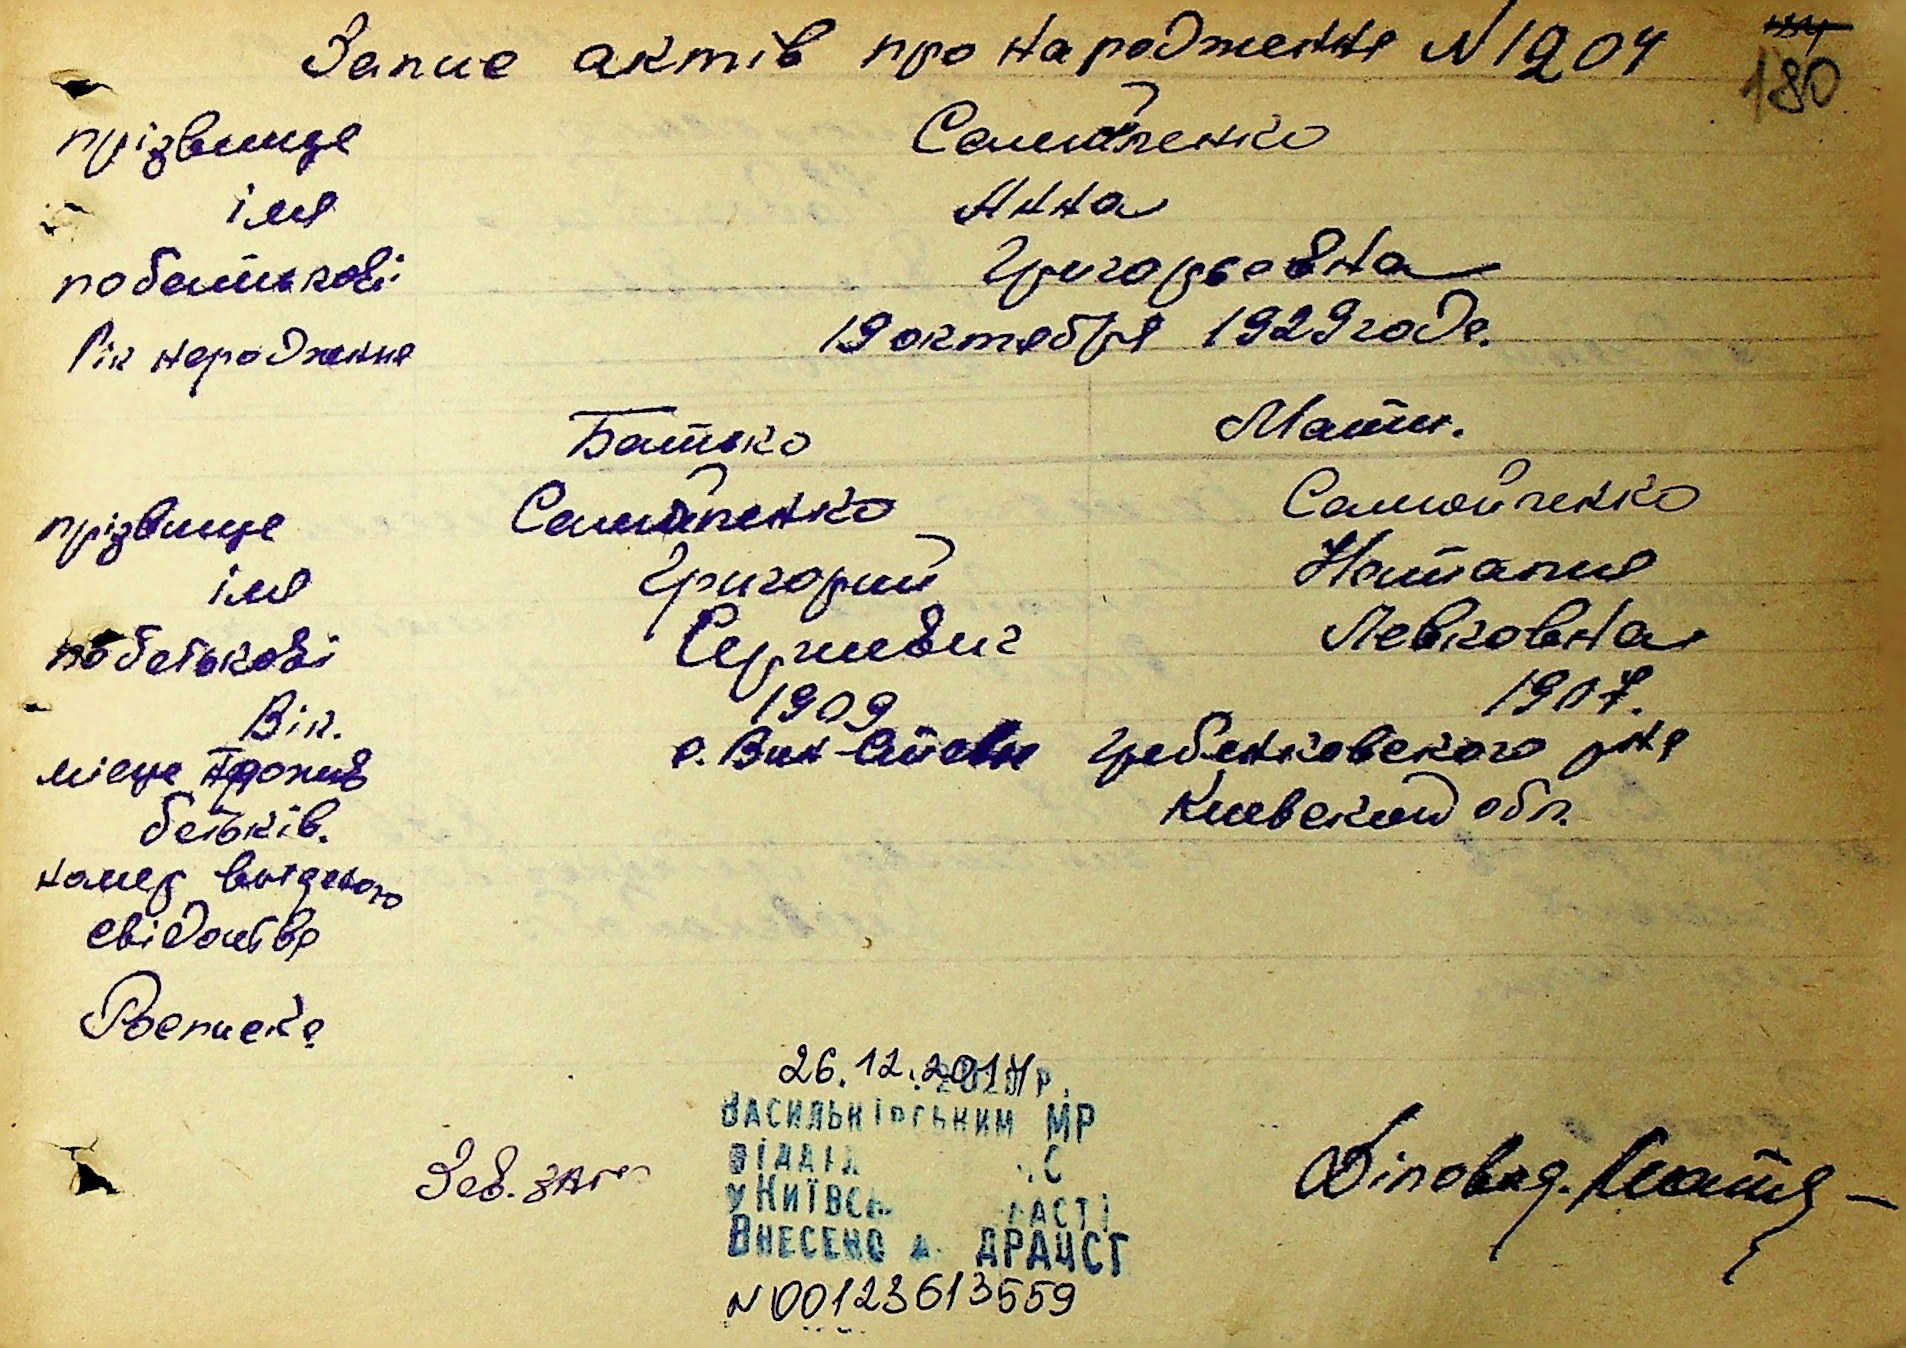 Запис актів про народження N 1204
180
прізвище Самойленко
імя Анна
побатькові Григорьевна
Рік народження 19 октября 1929 года.
Батько Мати.
прізвище Самойленко Самойленко
імя Григорий Наталия
по батькові Сергиевич Левковна
Вік. 1909 1907.
місце прожив с. Вин-Ставы Гребенковского р-на
батьків. Киевской обл.
номер виданого
свідоцтва
Росписка
26.12.2017р.
ВАСИЛЬКІВСЬКИМ МР
ВІДДІЛ
У КИЇВСЬ ЛАСТІ
Зав. загс
ВНЕСЕНО ДРАЦСГ
N 00123613559